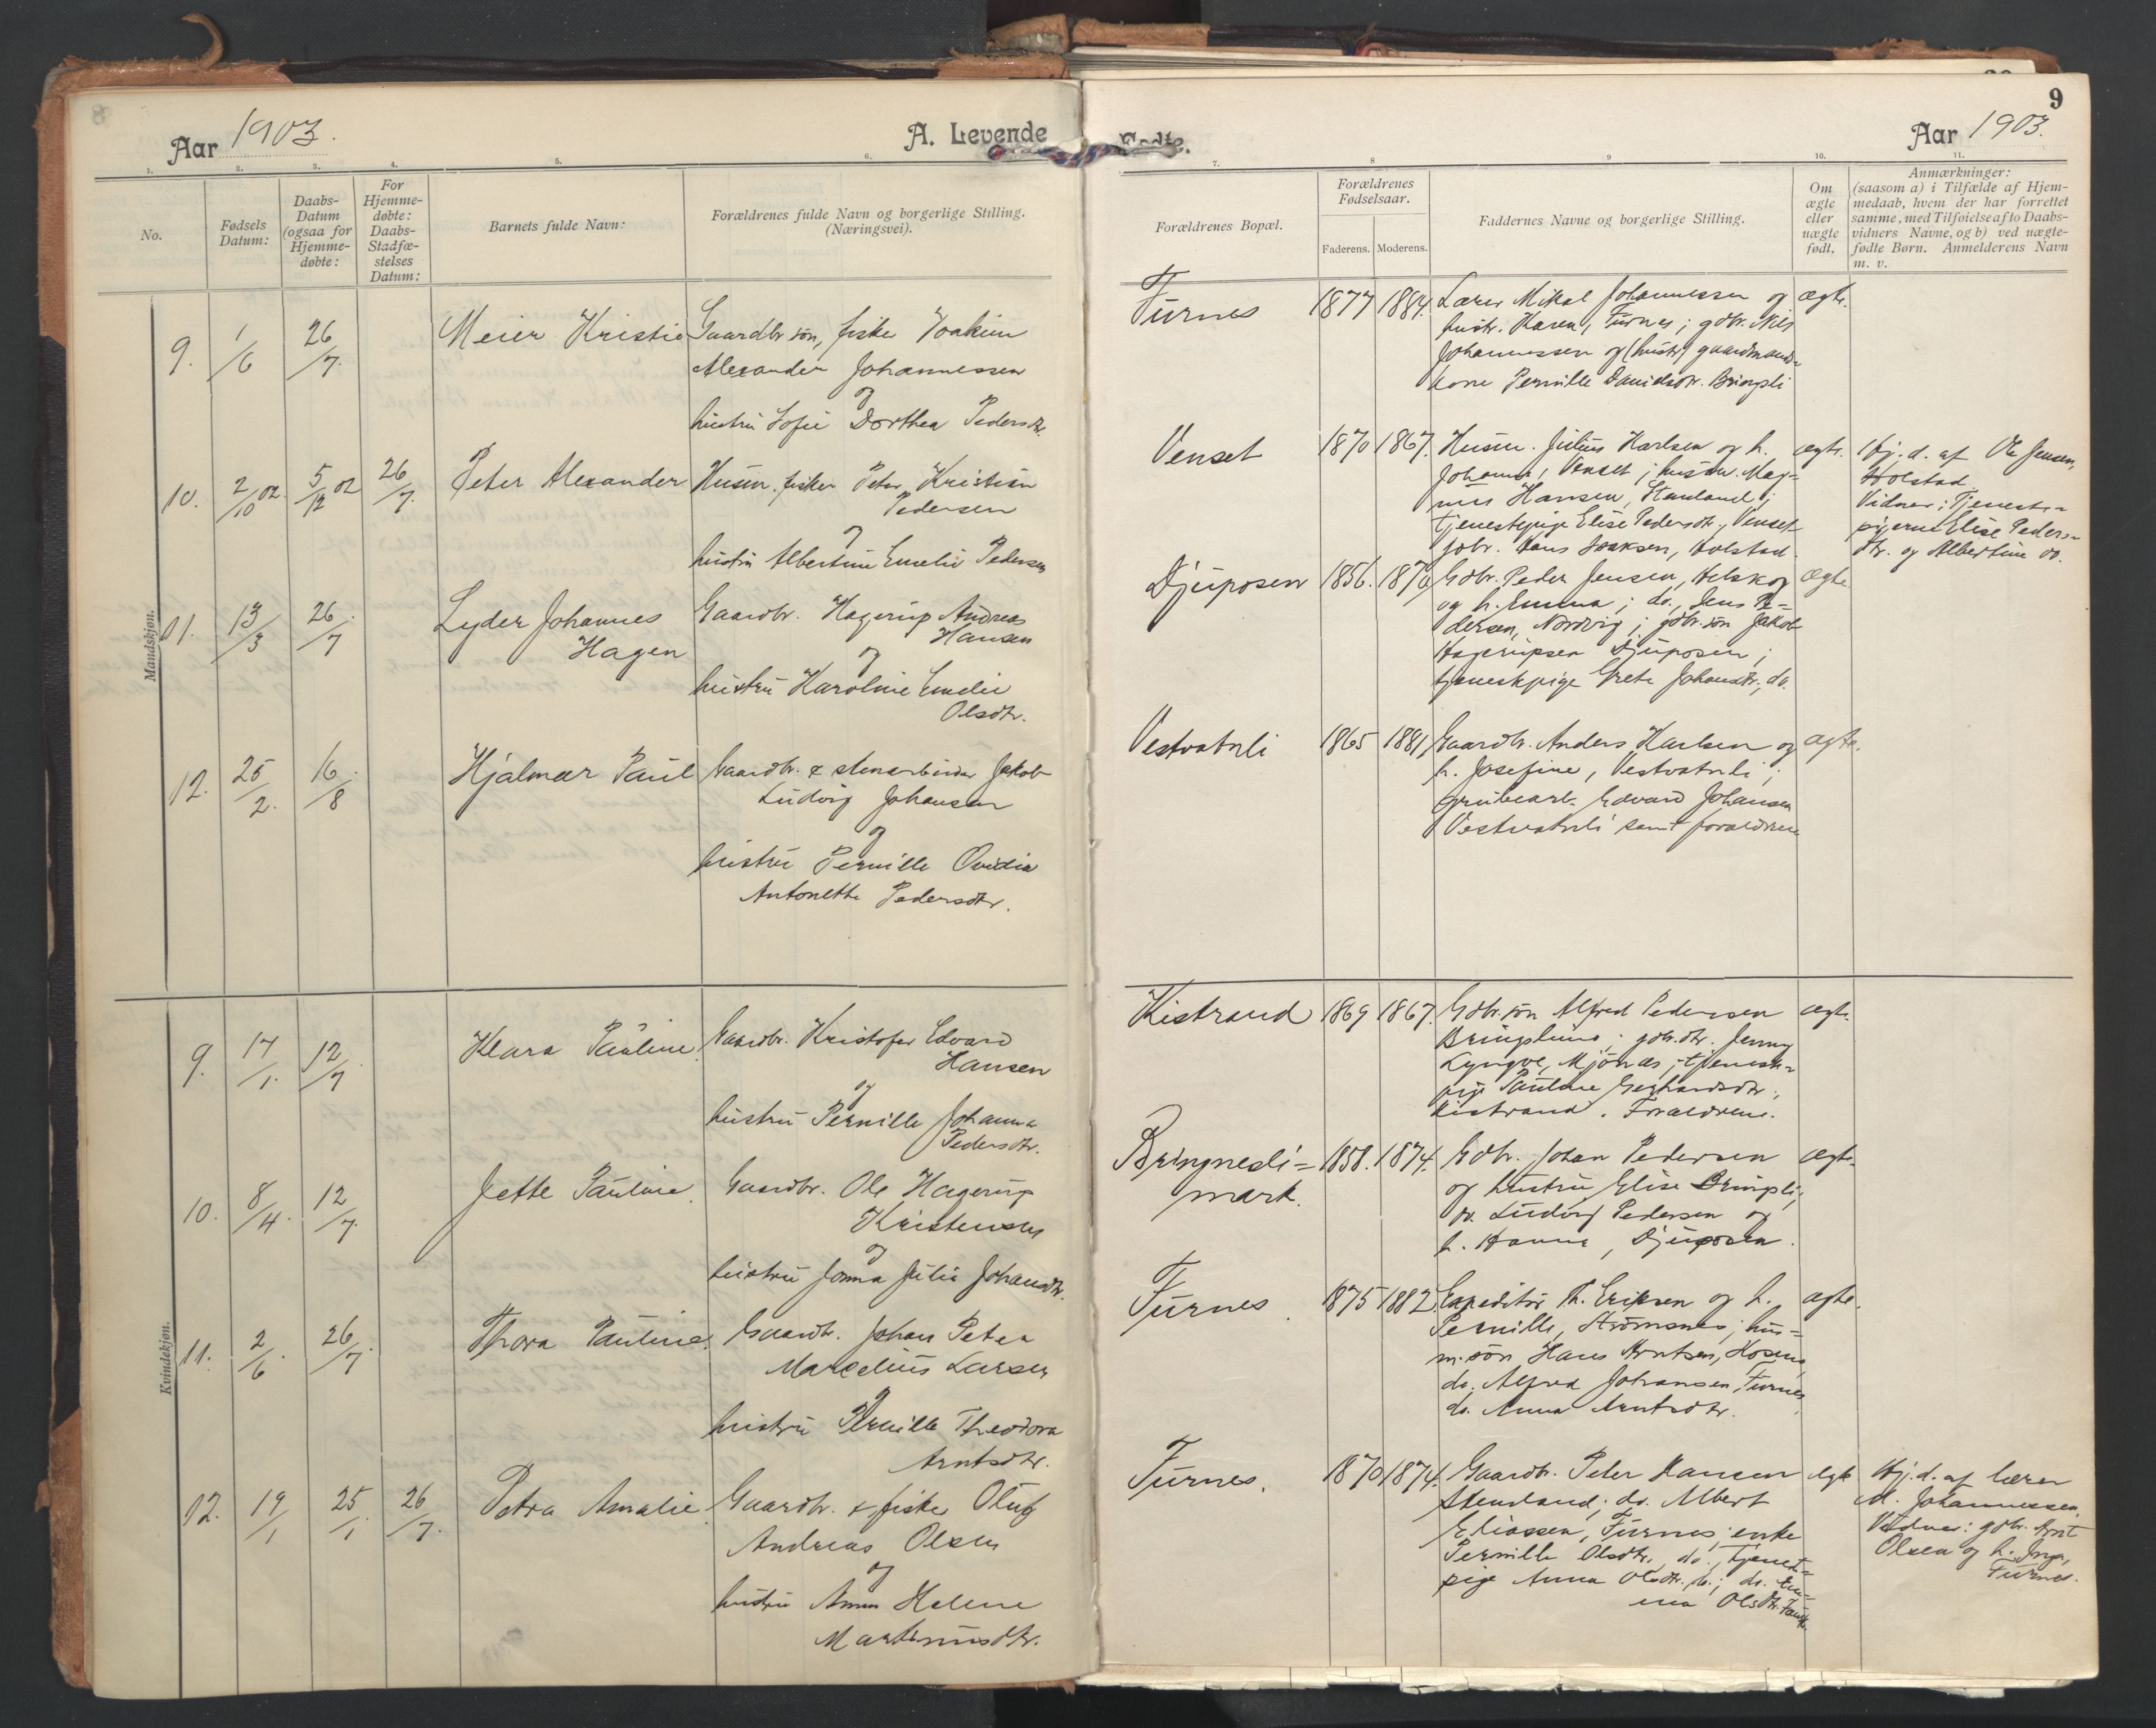 Aar 1903.
A. Levende
1. 2. 3. 4. 5. 6.
No.
Fødsels
Datum:
Daabs-
Datum
(ogsaa for
Hjemme-
døbte:
For
Hjemme-
døbte:
Daabs-
Stadfæ-
stelses
Datum:
Barnets fulde Navn:
Forældrenes fulde Navn og borgerlige Stilling.
(Næringsvei).
Mandskjøn.
9. 1/6 26/7. Meier Kristie
Gaardbr søn, fisker Joakim
Alexander Johannessen
og
hustru Sofie Dorthea Pedersdtr.
10. 2/10 02. 5/12 02 26/7. Peter Alexander
Husm. fisker Peter Kristian
Pedersen
og
hustru Albertine Emelie Pedersen
11. 13/3 26/7. Lyder Johannes
Hagen
Gaardbr. Hagerup Andreas
Hansen
og
hustru Karoline Emelie
Olsdtr.
12. 25/2. 16/8. Hjalmar Paul
Gaardbr. & stenarbeider Jakob
Ludvig Johansen
og
hustru Pernille Ovidia
Antonette Pedersdtr.
Kvindekjøn.
9. 17/1. 12/7. Klara Pauline.
Gaardbr. Kristofer Edvard
Hansen
og
hustru Pernille Johanna
Pedersdtr.
10. 8/4. 12/7. Jette Pauline.
Gaardbr. Ole Hagerup
Kristensen
og
hustru Jonna Julie Johansdtr.
11. 2/6. 26/7. Thora Pauline.
Gaardbr. Johan Peter
Marcelius Larsen
hustru Pernille Theodora
Arntsdtr.
12. 19/1 25/1 26/7. Petra Amalie.
Gaardbr. & fisker Oluf
Andreas Olsen
og
hustru Anna Helene
Martinusdtr.
Fødte.
Aar 1903.
9
7. 8 9 10. 11.
Forældrenes Bopæl.
Forældrenes
Fødselsaar.
Faderens. Moderens.
Faddernes Navne og borgerlige Stilling.
Om
ægte
eller
uægte
født.
Anmærkninger:
(saasom a) i Tilfælde af Hjem-
medaab, hvem der har forrettet
samme, med Tilføielse af to Daabs-
vidners Navne, og b) ved uægte-
fødte Børn. Anmelderens Navn
m. v.
Furnes 1877 1884. Lærer Mikal Johannessen og ægte.
hustr. Karen, Furnes; gdbr. Nils
Johannessen og (hustr) gaardmands-
kone Pernille Danielsdtr. Bringsli
Venset 1870 1867. Husm. Julius Karlsen og h. ægte.
Johanna, Venset; husm. Mag-
nus Hansen, Stenland;
tjenestepige Elise Pedersdtr., Venset
gdbr. Hans Isaksen, Holstad.
Hj. d. af Ole Jensen,
Holstad.
Vidner: Tjeneste-
pigerne Elise Peders-
dtr. og Albertine do.
Djuposen 1856. 1870 Gdbr. Peder Jensen, Alskog ægte
og h. Emma; do. Jens Pe-
dersen, Nordvig; gdbr. søn Jakob
Hagerupsen Djuposen;
tjenestpige Grete Johansdtr., do.
Vestvatnli 1865 1881 Gaardbr. Anders Karlsen og ægte.
h. Josefine, Vestvatnli;
grubearb. Edvard Johansen
Vestvatnli samt forældrene
Kistrand 1869 1867. Gdbr. søn Alfred Pedersen ægte.
Bringslimo; gdbr. dtr. Jenny
Lyngve, Mjønes; tjenest-
pige Pauline Gerhardsdtr.,
Kistrand. Forældrene.
Bringnesli=
mark. 1858. 1874. Gdbr. Johan Pedersen ægte.
og hustru Elise Bringsli;
do. Ludvig Pedersen og
h. Hanna, Djuposen.
Furnes. 1875 1882. Expeditør Th. Eriksen og h. ægte.
Pernille, Strømsnes; hus-
m. søn Hans Arntsen, Kosmo,
do. Alfred Johansen, Furnes
do. Anna Arntsdtr.
Furnes. 1870 1874. Gaardbr. Peter Hansen ægte
Stenland; do. Albert
Eliassen, Furnes; enke
Pernille Olsdtr., do., tjenest-
pige Anna Olsdtr. do.; do. Em-
ma Olsdtr.
Hj. d. af lærer
M. Johannessen.
Vidner: gdbr. Arnt
Olsen og h. Inga,
Furnes.